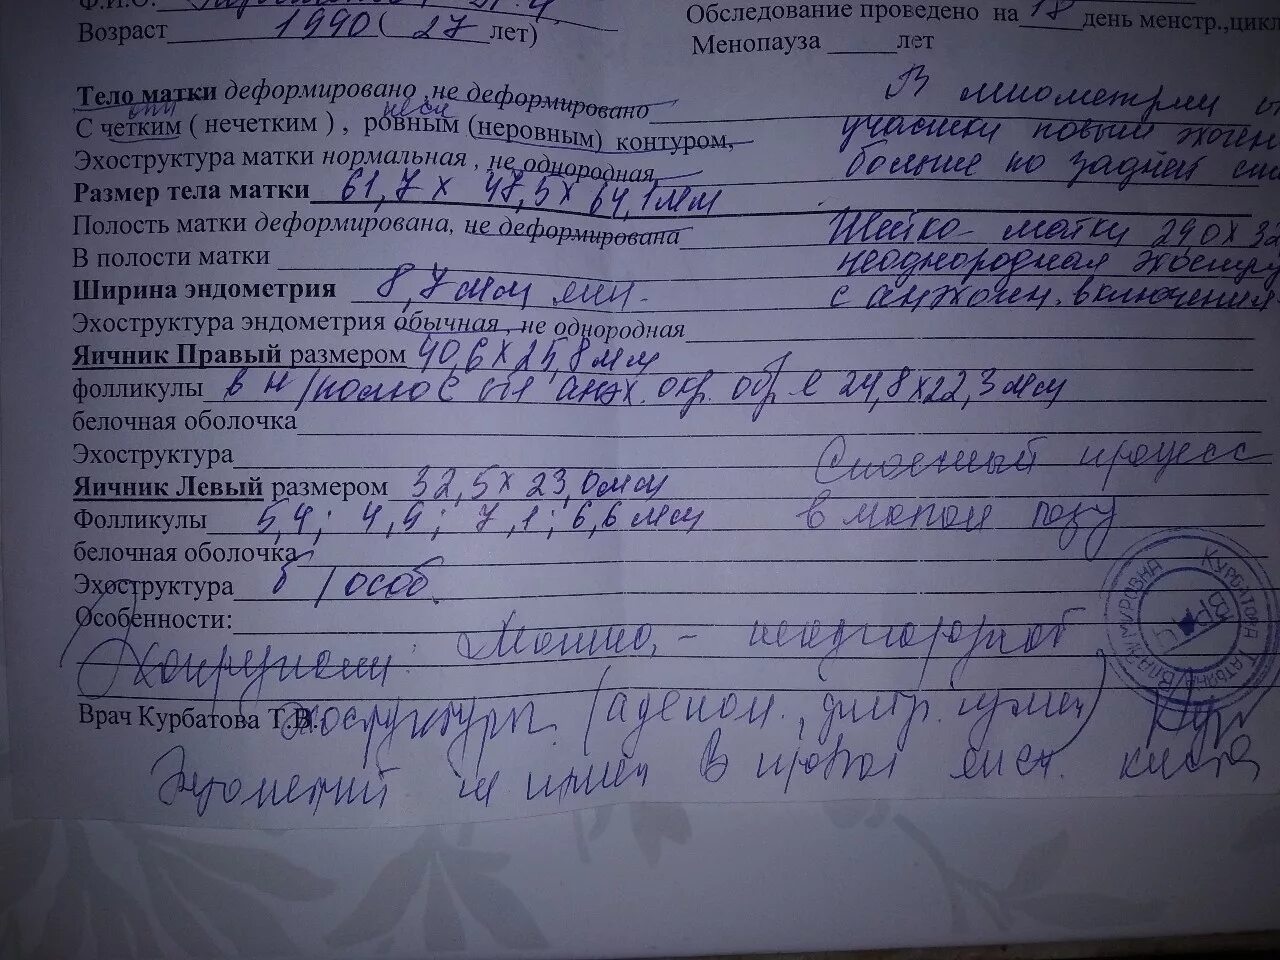 Ф.И.О.
Возраст 1990 ( 27 лет)
Обследование проведено на 18 день менстр.,цикл
Менопауза лет
Тело матки деформировано ,не деформировано
С четким ( нечетким ) , ровным (неровным) контуром,
Эхоструктура матки нормальная , не однородная
Размер тела матки 61,7 х 47,5 х 64,1 мм
Полость матки деформирована, не деформирована
В полости матки
Ширина эндометрия 8,7 мм
Эхоструктура эндометрия обычная , не однородная
В миометрии
участки повыш эхоген
больше по задней
Шейка матки
неоднородная эхостру
с анэхоген. включения
Яичник Правый размером 40,6 х 25,8 мм
фолликулы в н/полюсе анэх. окр. обр. 24,8 х 22,3 мм
белочная оболочка
Эхоструктура
Яичник Левый размером 32,5 х 23,0 мм
Фолликулы 5,4; 4,9; 7,1; 6,6 мм
белочная оболочка
Эхоструктура б/особ.
Спаечный процесс
в малом тазу
Особенности:
Матка - неоднородной
Врач Курбатова Т.В. эхоструктуры
Эндометрий В правом яичн. киста
КУРБАТОВА ТАТЬЯНА
ВРАЧ